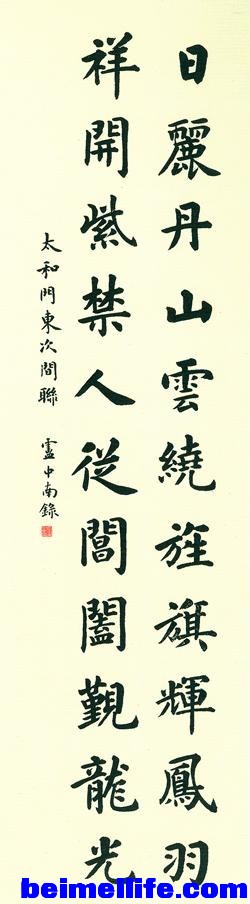 日麗丹山雲繞旌旗輝鳳羽
祥開紫禁人從閶闔覲龍光
太和門東次間聯 盧中南錄
beimeilife.com